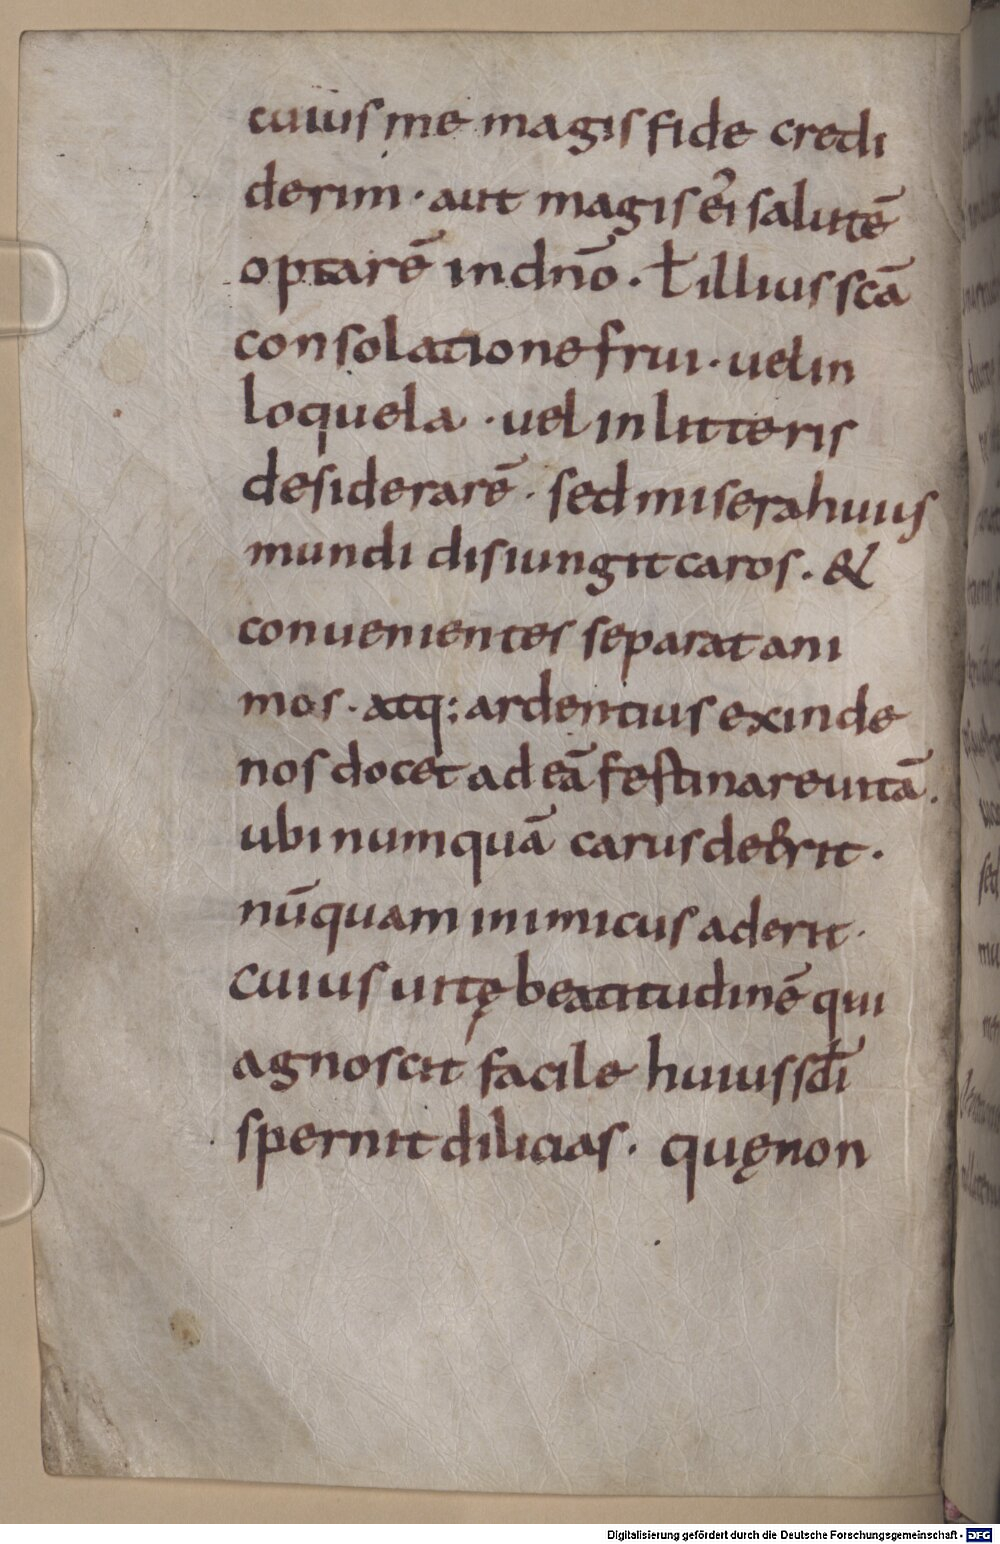 cuius me magis fide credi
derim · aut magis ei᷒ salutē
optarē in dn̄o · ł illius scā
consolatione frui · uel in
loquela · uel in litteris
desiderarē · sed misera huius
mundi disiungit caros · &
conuenientes separat ani
mos · atq: ardentius exinde
nos docet ad eā festinare uitā ·
ubi numquā carus deerit ·
nū̄quam inimicus aderit ·
cuius uitę beatitudinē qui
agnoscit facile huius sc̄li
spernit dilicias · quę non
Digitalisierung gefördert durch die Deutsche Forschungsgemeinschaft - DFG